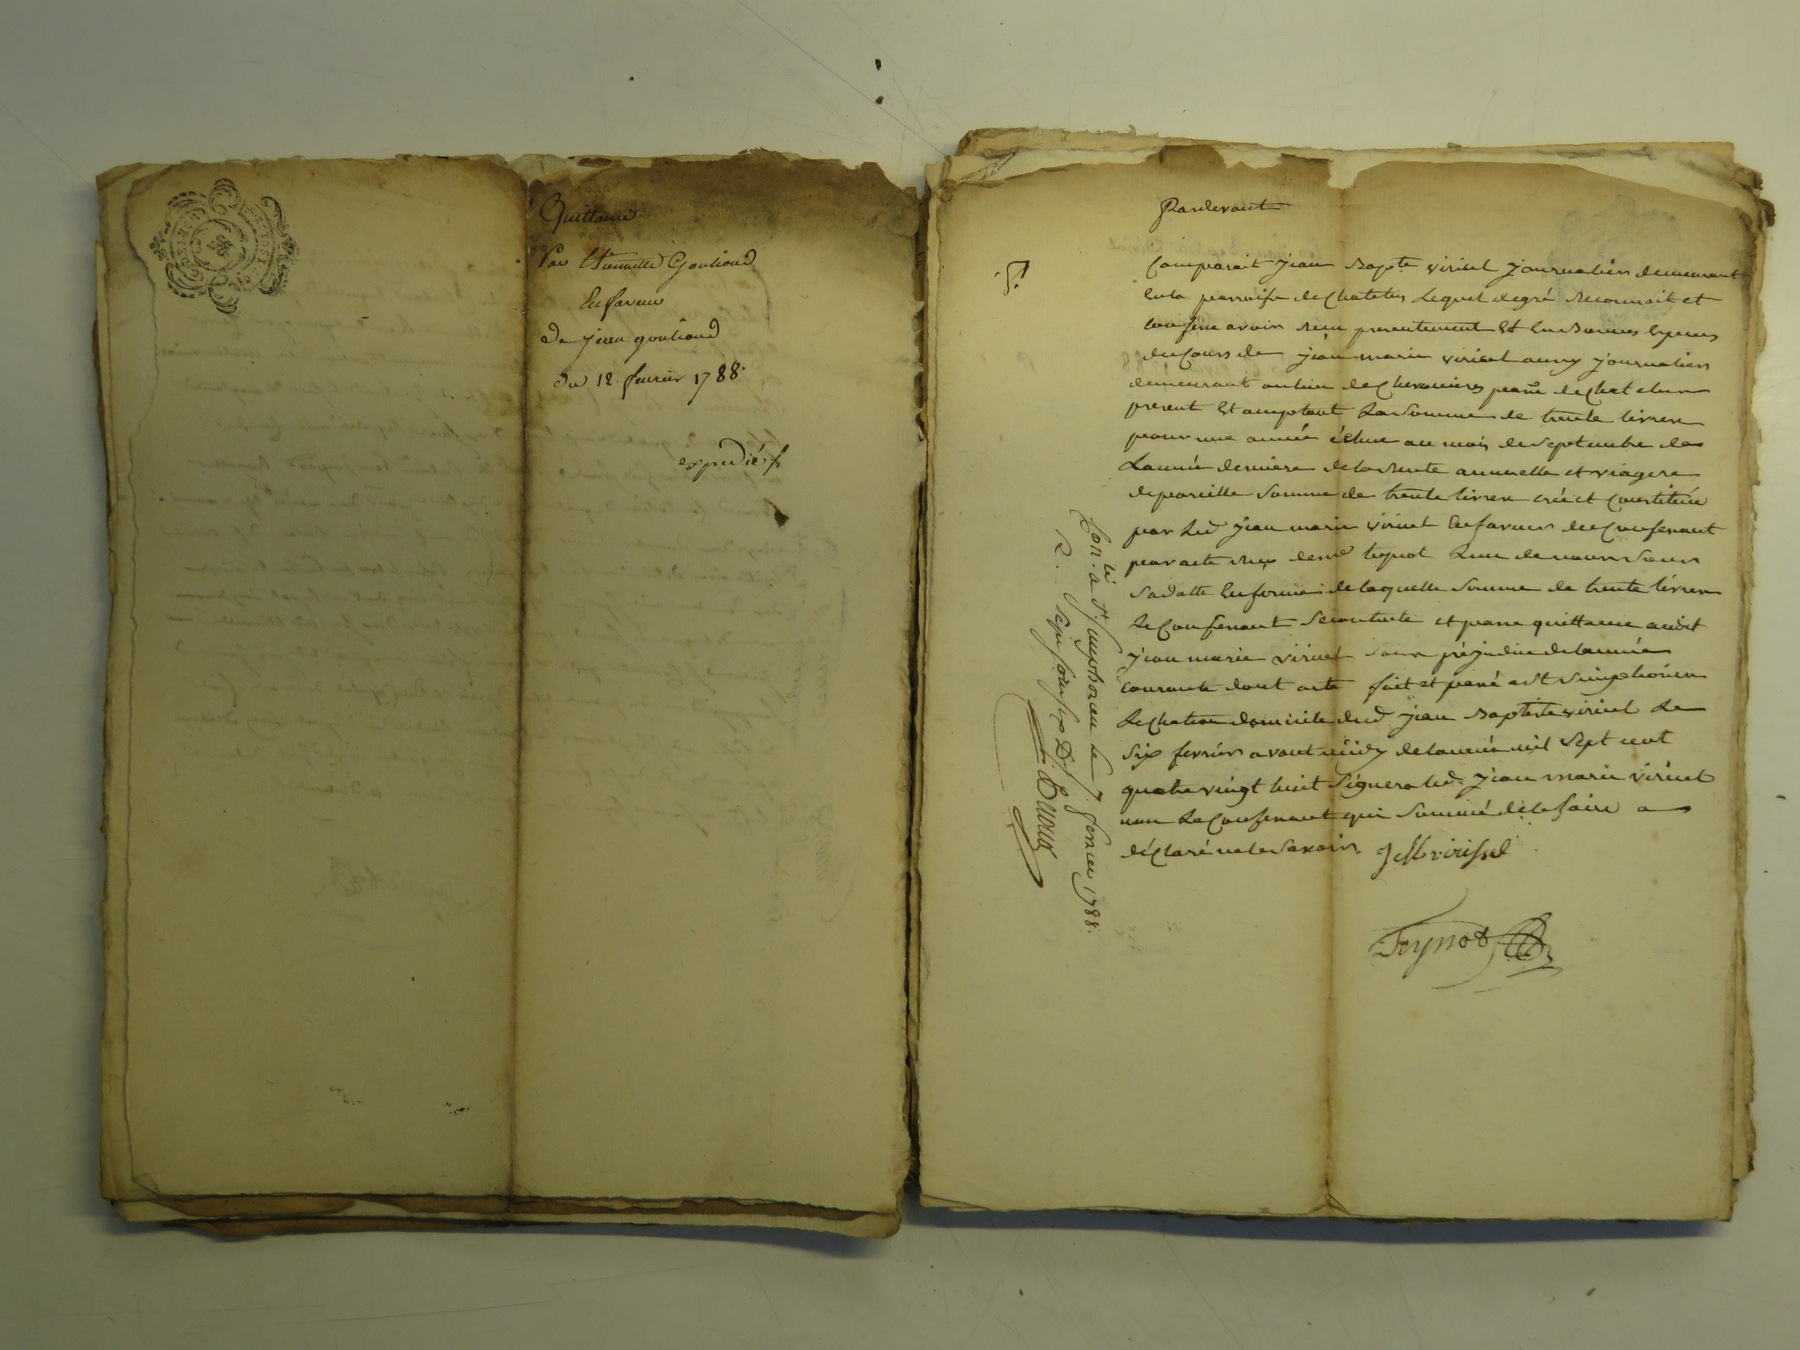 Quittance
Par Etiennette Goutiond
En faveur
de jean goutiond
du 12. fevrier 1788.
expedié f.
Pardevant
Comparait jean Bapte virisel journalier demeurant
en la parroisse de Chatelus Lequel degré Reconnait et
confesse avoir reçu presentement Et En Bonnes Especes
du Cours de jean marie virisel aussy journalier
demeurant au lieu de parsse de Chatelus
present Et acceptant La Somme de trente livres
pour une année échue au mois de Septembre de
L'année derniere de la Rente annuelle et viagere
de pareille Somme de trente livres créé et Constituée
par Led jean marie virisel En faveur du Confessant
par acte reçu Teynot L'un de nous Sous
Sa datte En forme de laquelle Somme de trente livres
Le Confessant Se contente et passe quittance audit
jean marie virisel Sans préjudice de l'année
courante dont acte fait et passé a St Simphorien
Le Chateau domicile dud jean Baptiste virisel Le
Six fevrier avant midy de l'année mil Sept cent
quatre vingt huit Signera led. jean marie virisel
non Le Confessant qui Sommé de le faire a
déclaré ne le Savoir. JM virissel
Teynot
Con.lé a St. Simphorien le 7. fevrier 1788.
R. Duroux